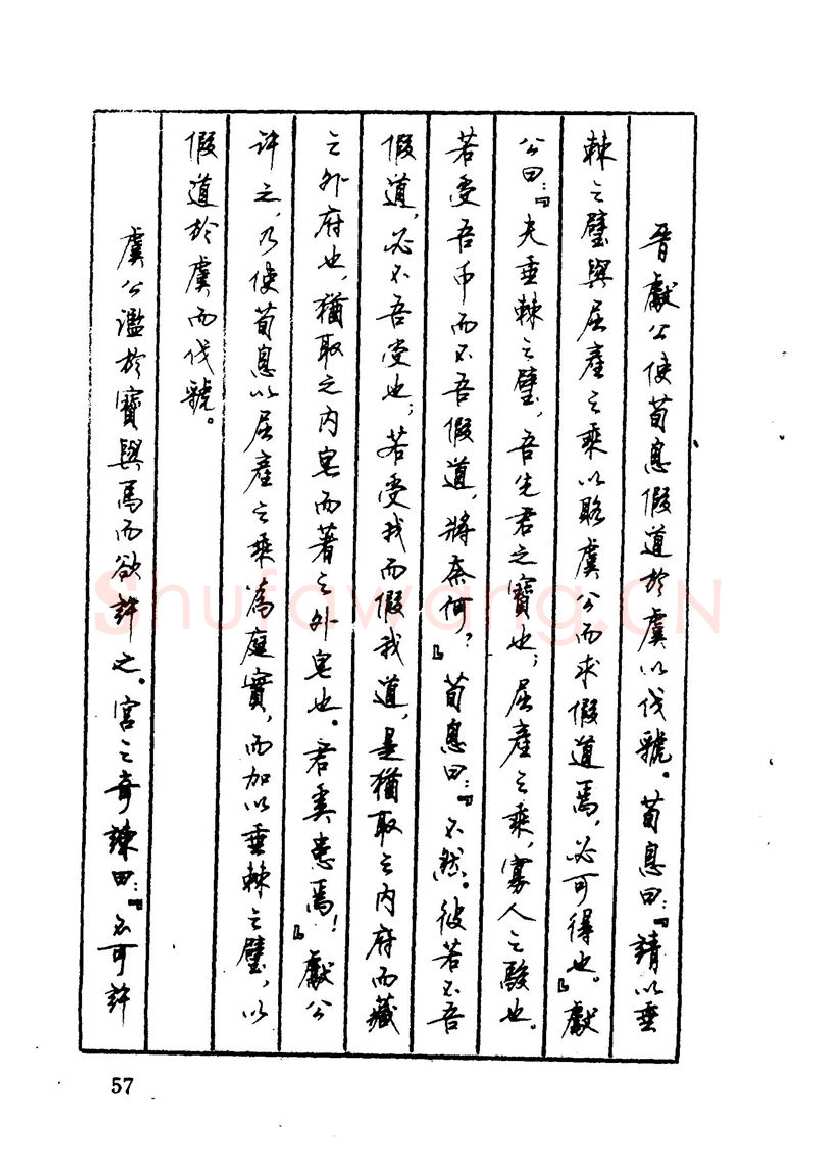 晋獻公使荀息假道於虞以伐虢。荀息曰：『請以垂
棘之璧與屈產之乘以賂虞公而求假道焉，必可得也。』獻
公曰：『夫垂棘之璧，吾先君之寶也；屈產之乘，寡人之駿也。
若受吾币而不吾假道，將奈何？』荀息曰：『不然。彼若不吾
假道，必不吾受也；若受我而假我道，是猶取之内府而藏
之外府也，猶取之内皂而著之外皂也。君奚患焉！』獻公
許之，乃使荀息以屈產之乘為庭實，而加以垂棘之璧，以
假道於虞而伐虢。
虞公濫於寶與馬而欲許之。宮之奇諫曰：『不可許
57
Shufawang.CN